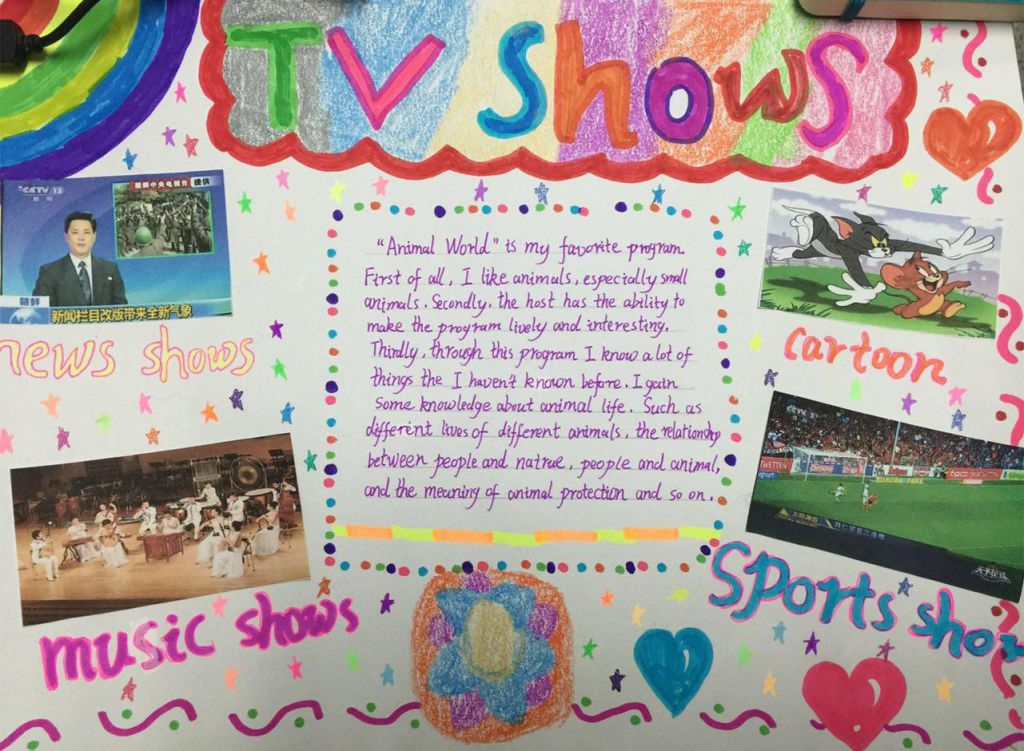 TV shows
CCTV 13
新闻
朝鲜中央电视台
提供
朝鲜
新闻栏目改版带来全新气象
news shows
"Animal World" is my favorite program.
First of all, I like animals, especially small
animals. Secondly, the host has the ability to
make the program lively and interesting.
Thirdly, through this program I know a lot of
things the I haven't known before. I gain
some knowledge about animal life. Such as
different lives of different animals, the relationship
between people and natrue, people and animal,
and the meaning of animal protection and so on.
cartoon
CCTV 5
EUROPA-PARK
tipico
天下足球
music shows
Sports show